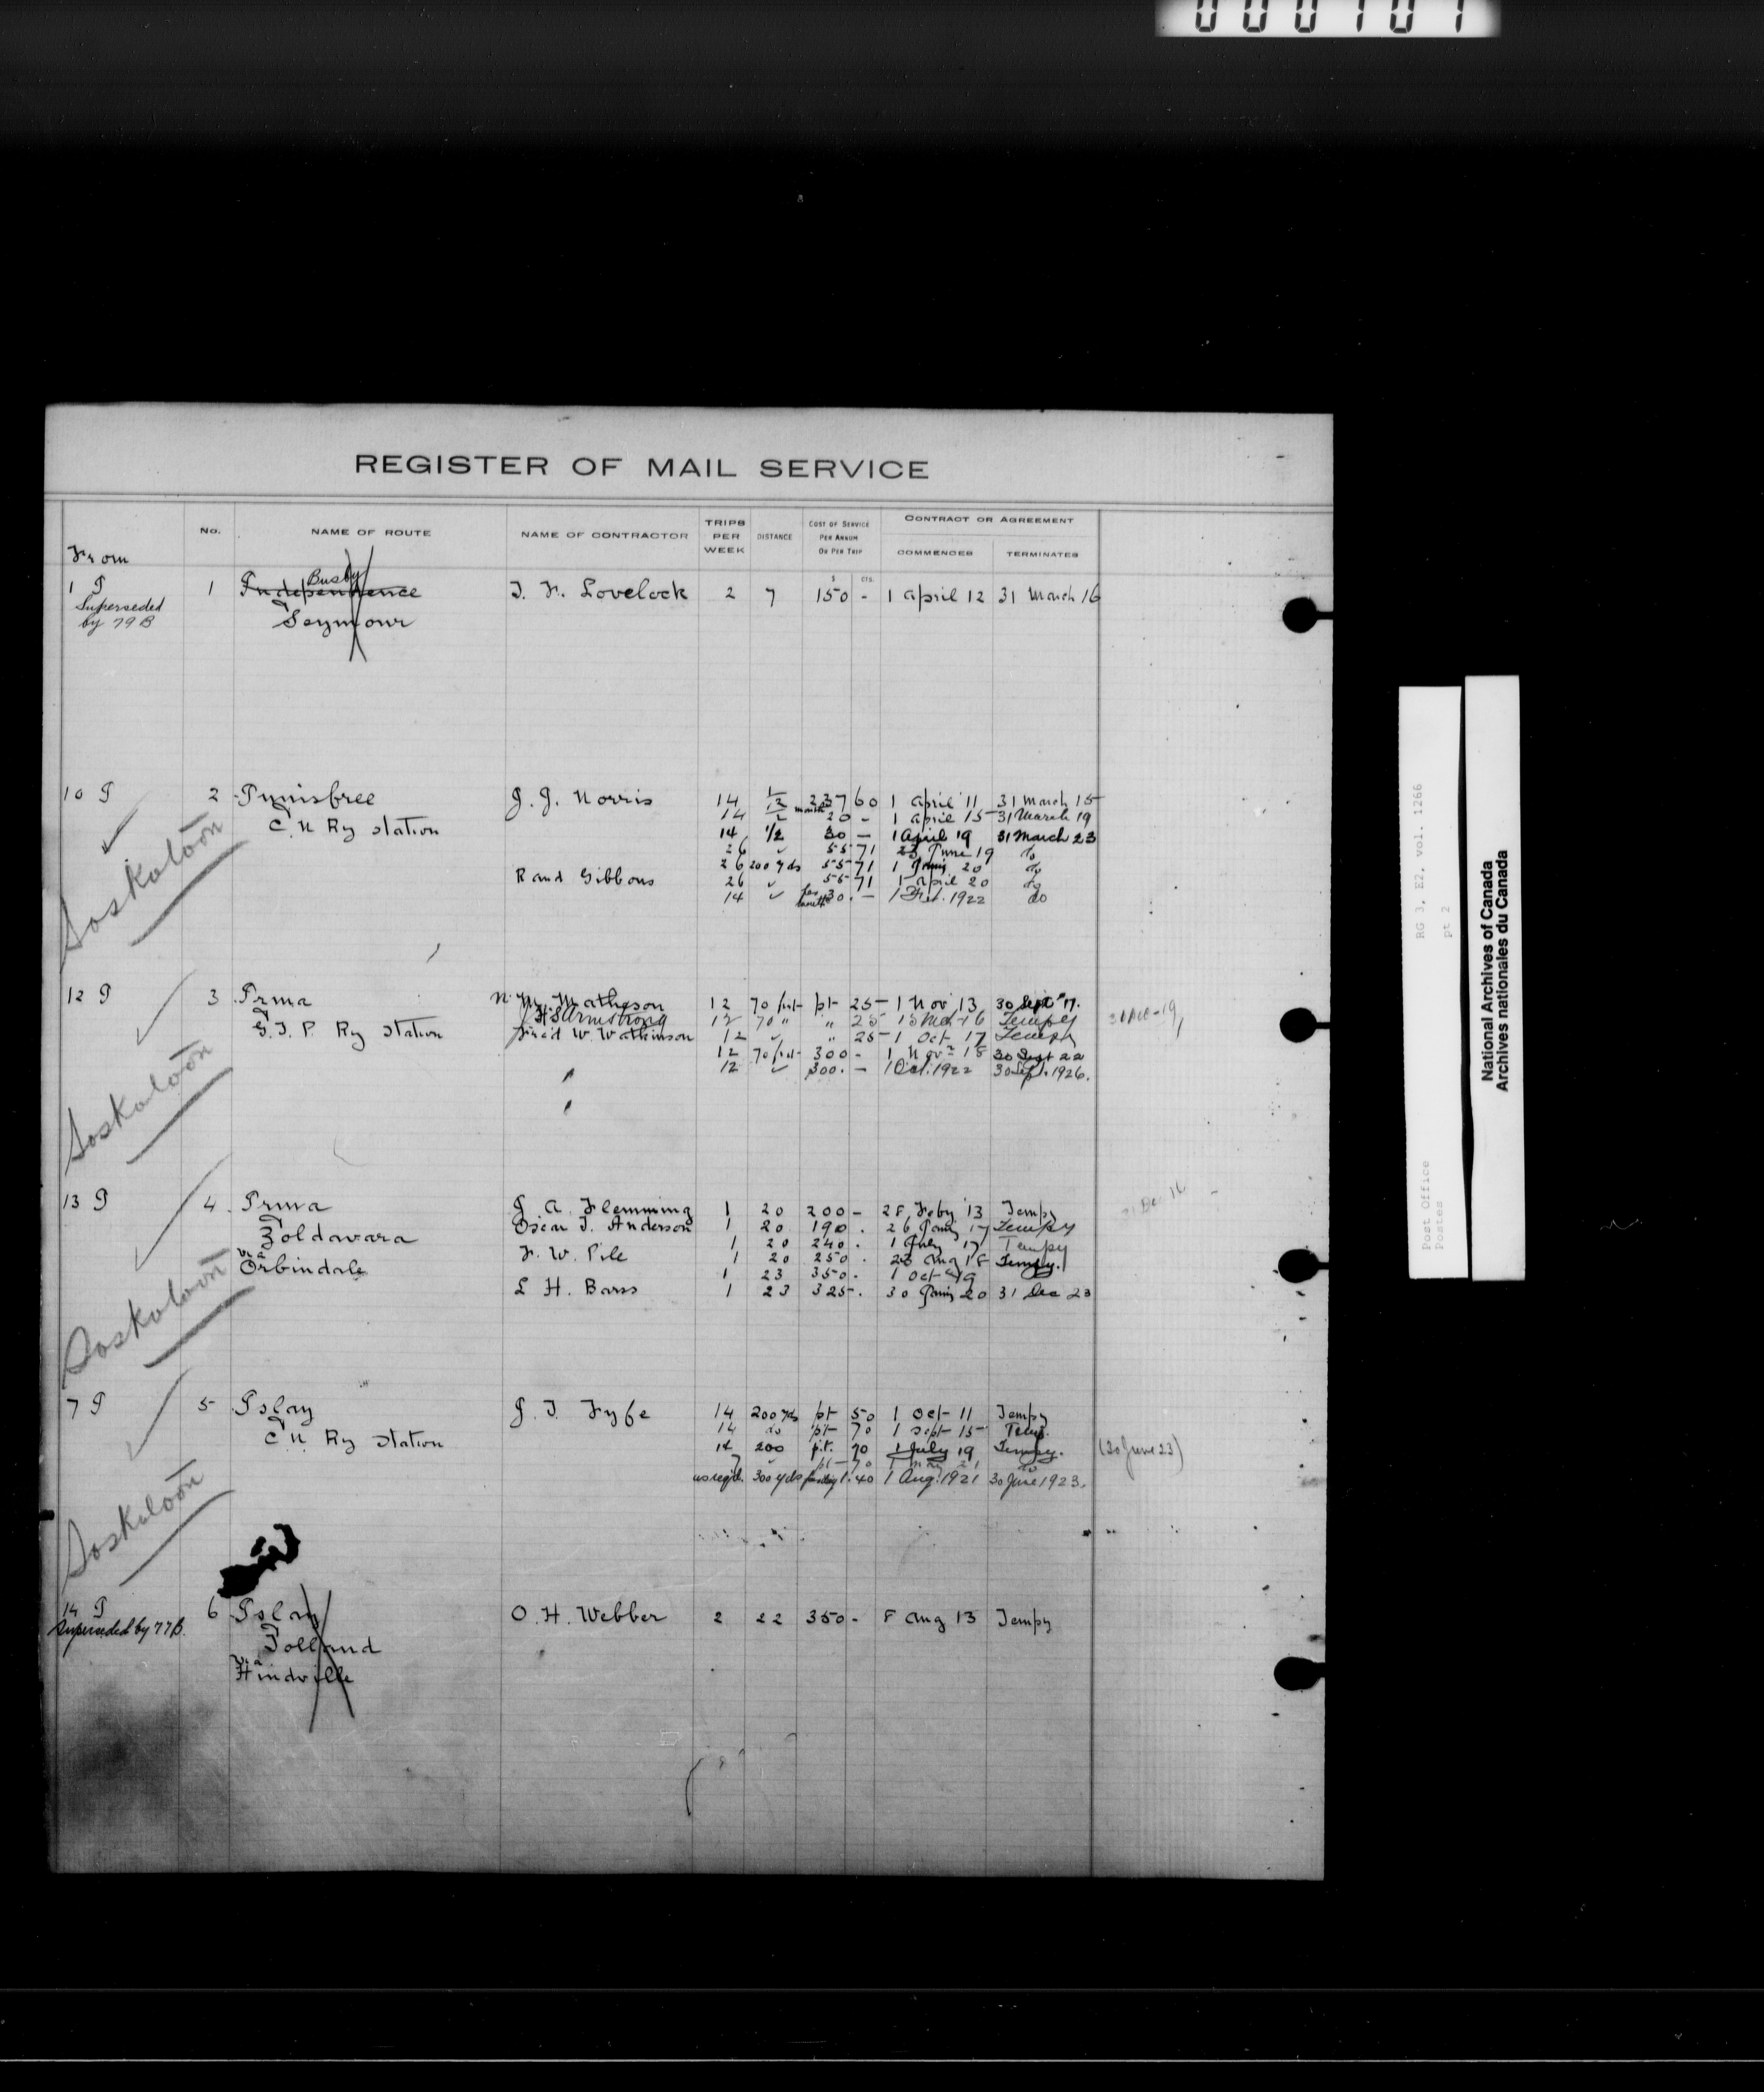 000101
REGISTER OF MAIL SERVICE
From No. NAME OF ROUTE NAME OF CONTRACTOR TRIPS PER WEEK DISTANCE COST OF SERVICE PER ANNUM OR PER TRIP CONTRACT OR AGREEMENT COMMENCES TERMINATES
$ CTS.
Busby
1 I 1 Independence T. H. Lovelock 2 7 150 - 1 April 12 31 March 16
Superseded
by 79 B Seymour
10 I 2 Innisfree J. J. Norris 14 1/2 237 60 1 April 11 31 March 15
& C. N Ry Station 14 1/2 month 20 - 1 April 15 31 March 19
14 1/2 30 — 1 April 19 31 March 23
26 " 55 71 23 June 19 do
26 200 yds 55 71 1 Jany 20 do
Rand Gibbons 26 " 55 71 1 April 20 do
14 " per month 30. — 1 Feb. 1922 do
Saskatoon
12 I 3 Irma N. M. Matheson 12 70 feet pt 25 1 Nov 13 30 Sept 17.
& G. T. P. Ry Station H S Armstrong 12 70 " " 25 15 Mch 16 Tempy 31 Dec -19
W. Watkinson 12 " " 25 1 Oct 17 Tempy
12 70 feet 300 - 1 Nov 18 30 Sept 22
12 " 300. — 1 Oct. 1922 30 Sept. 1926.
Saskatoon
13 I 4 Irma J. A. Flemming 1 20 200 - 28 Feby 13 Tempy 31 Dec 16
& Zoldavara Oscar T. Anderson 1 20 190 . 26 Jany 17 Tempy
1 20 240 . 1 July 17 Tempy
via Orbindale F. W. Pile 1 20 250 . 23 Aug 18 Tempy.
1 23 350 . 1 Oct 19
L H. Barss 1 23 325 . 30 Jany 20 31 Dec 23
Saskatoon
7 I 5 Islay J. T. Fyfe 14 200 yds pt 50 1 Oct 11 Tempy
& C N Ry Station 14 do pt 70 1 Sept 15 Temp.
14 200 p.t. 70 1 July 19 Tempy. (30 June 23)
7 " pt - 70 1 May 21 do
as reqd. 300 yds per day 1.40 1 Aug. 1921 30 June 1923.
Saskatoon
14 I 6 Islay O. H. Webber 2 22 350 - 8 Aug 13 Tempy
Superseded by 77B.
& Tolland
via Hindville
Post Office RG 3, E2, vol. 1266
Postes pt 2
National Archives of Canada
Archives nationales du Canada